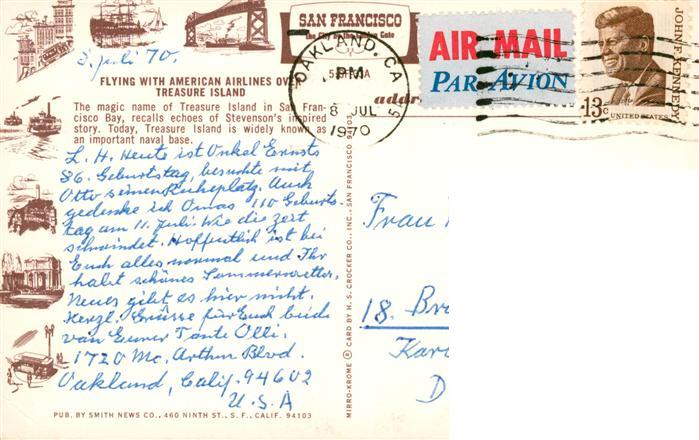 8. juli 70.
SAN FRANCISCO
The City by the Golden Gate
OAKLAND, CA
PM
8 JUL
1970
AIR MAIL
PAR AVION
JOHN F. KENNEDY
13c
UNITED STATES
FLYING WITH AMERICAN AIRLINES OVER
TREASURE ISLAND
The magic name of Treasure Island in San Fran-
cisco Bay, recalls echoes of Stevenson's inspired
story. Today, Treasure Island is widely known as
an important naval base.
L. H. Heute ist Onkel Ernsts
86. Geburtstag, besuchte mit
Otto seinen Ruheplatz. Auch
gedenke ich Omas 110 Geburts-
tag am 11. Juli. Wie die zeit
schwindet. Hoffentlich ist bei
Euch alles normal und Ihr
habt schönes Sommerwetter.
Neues gibt es hier nicht.
Herzl. Grüsse für Euch beide
von Eurer Tante Olli.
1720 Mc. Arthur Blvd.
Oakland, Calif. 94602
U.S.A
Frau
18. Br
Kar
D
MIRRO-KROME ® CARD BY H. S. CROCKER CO., INC., SAN FRANCISCO
PUB. BY SMITH NEWS CO., 460 NINTH ST., S. F., CALIF. 94103